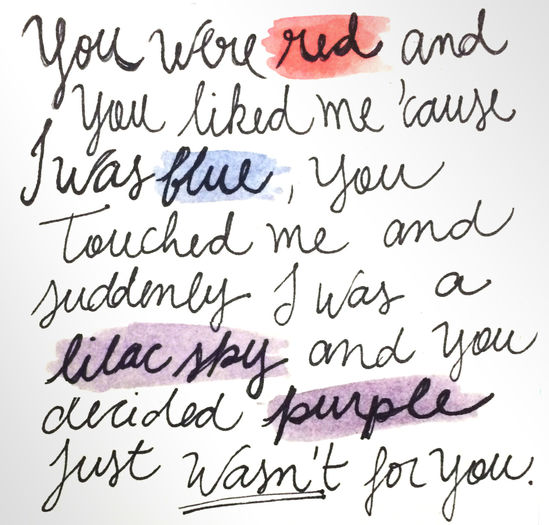 You were red and
You liked me 'cause
I was blue, you
Touched me and
suddenly I was a
lilac spy and you
decided purple
Just wasn't for you.